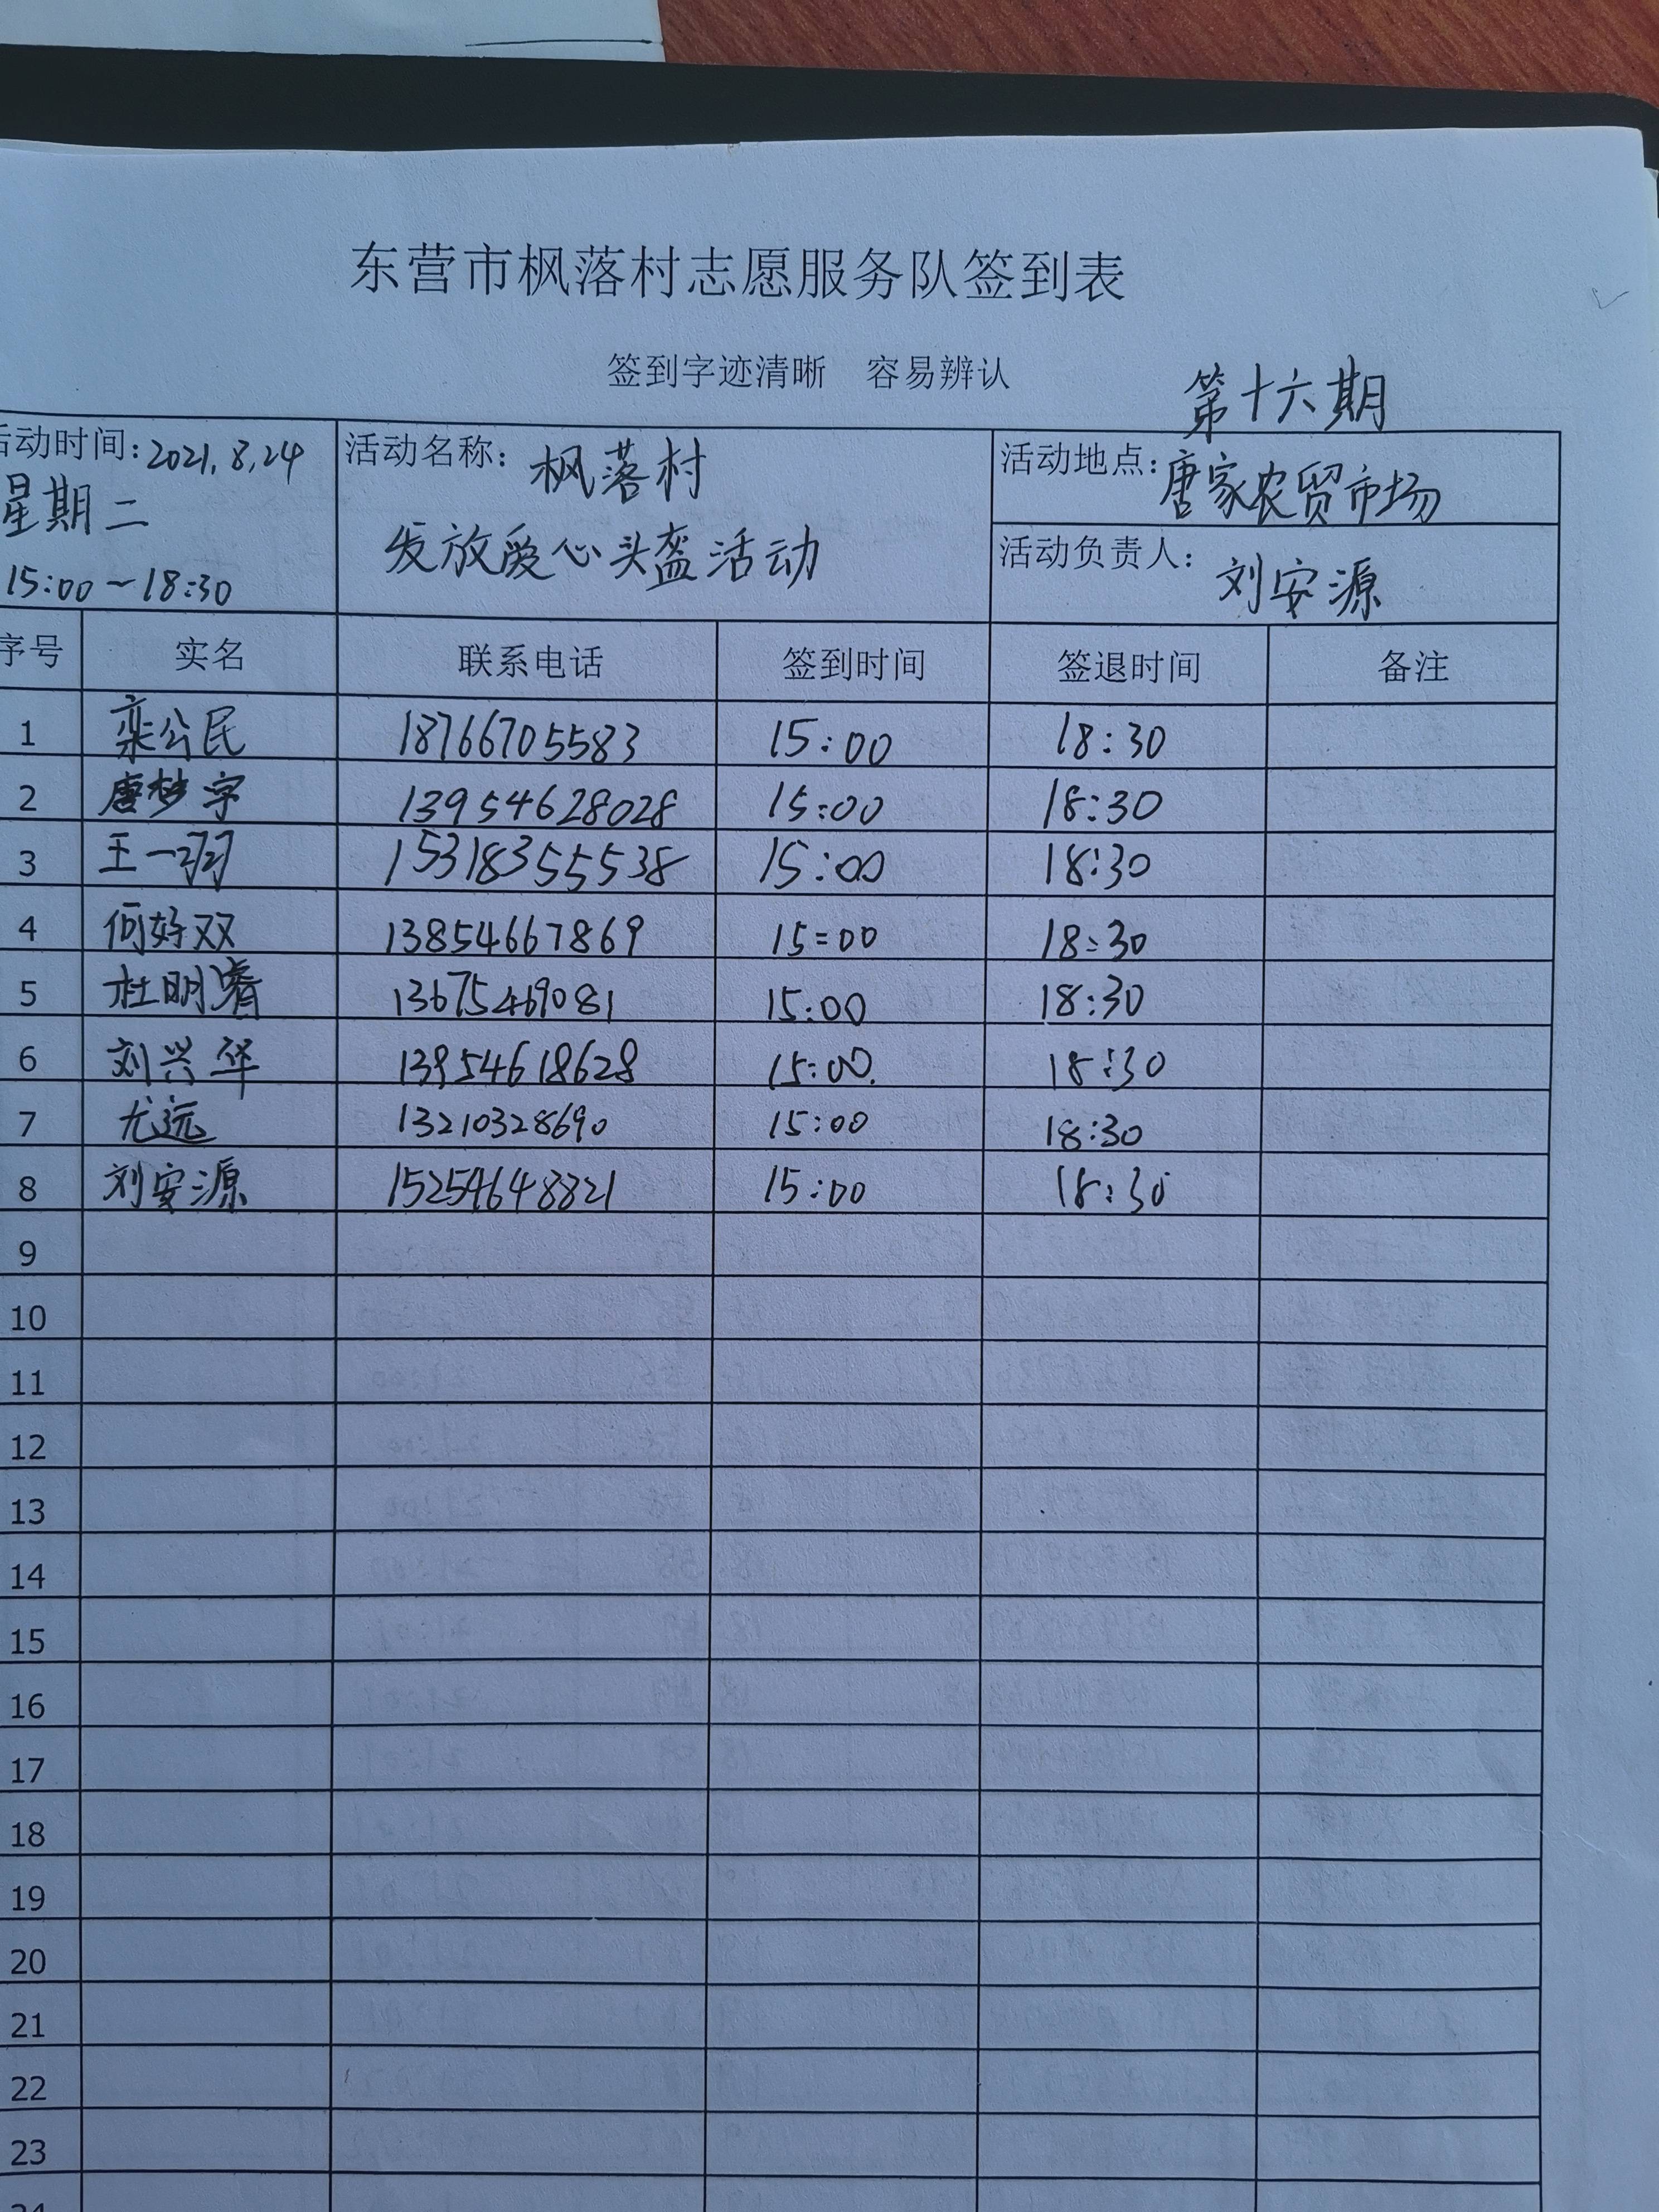 东营市枫落村志愿服务队签到表
签到字迹清晰 容易辨认
第十六期
活动时间: 2021.8.24
星期二
15:00~18:30
活动名称: 枫落村
发放爱心头盔活动
活动地点: 唐家农贸市场
活动负责人: 刘安源
序号 实名 联系电话 签到时间 签退时间 备注
1 栾公民 18766705583 15:00 18:30
2 唐梦宇 13954628028 15:00 18:30
3 王一羽 15318355538 15:00 18:30
4 何好双 13854667869 15:00 18:30
5 杜明睿 13675469081 15:00 18:30
6 刘兴华 13954618628 15:00 18:30
7 尤远 13210328690 15:00 18:30
8 刘安源 15254648821 15:00 18:30
9
10
11
12
13
14
15
16
17
18
19
20
21
22
23
24